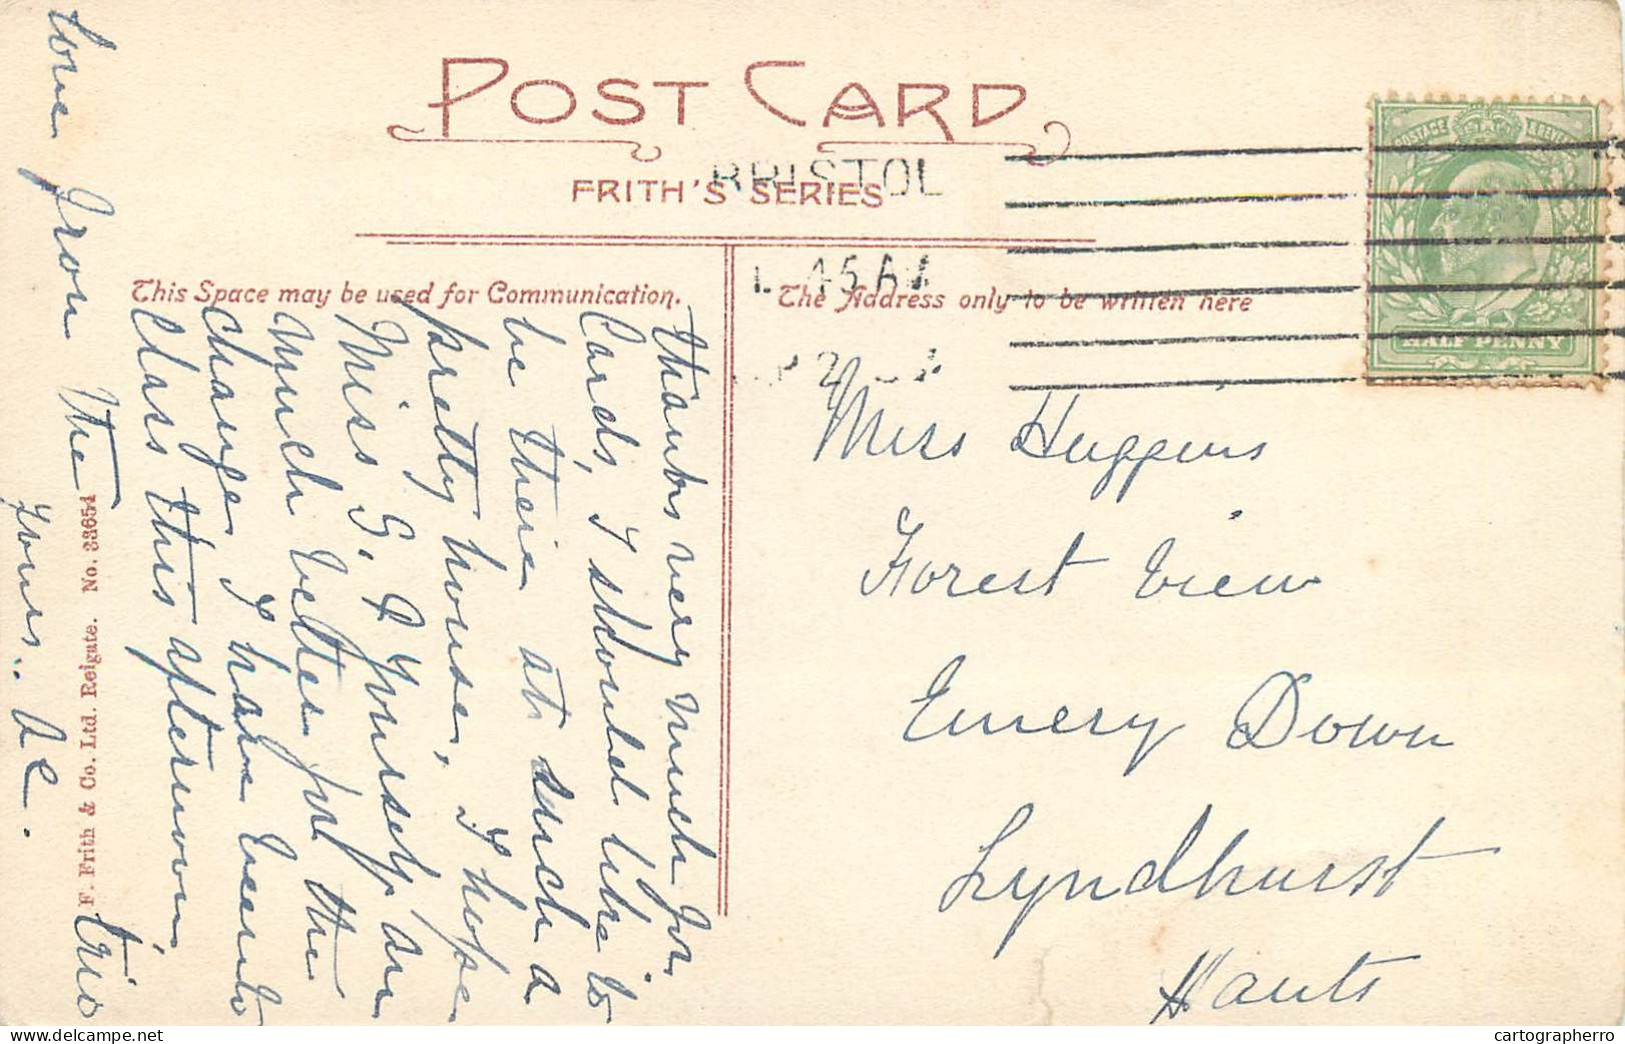 POST CARD
FRITH'S SERIES
BRISTOL
45 AM
This Space may be used for Communication.
The Address only to be written here
POSTAGE & REVENUE
HALF PENNY
thanks very much for
Cards, I should like to
be there at such a
pretty house, I hope
Miss G. & Yourself are
much better for the
change, I have been to
Class this afternoon,
love from the trio
Yours..
Miss Huggins
Forest View
Emery Down
Lyndhurst
Hants
F. Frith & Co. Ltd. Reigate. No. 33654
cartographerro